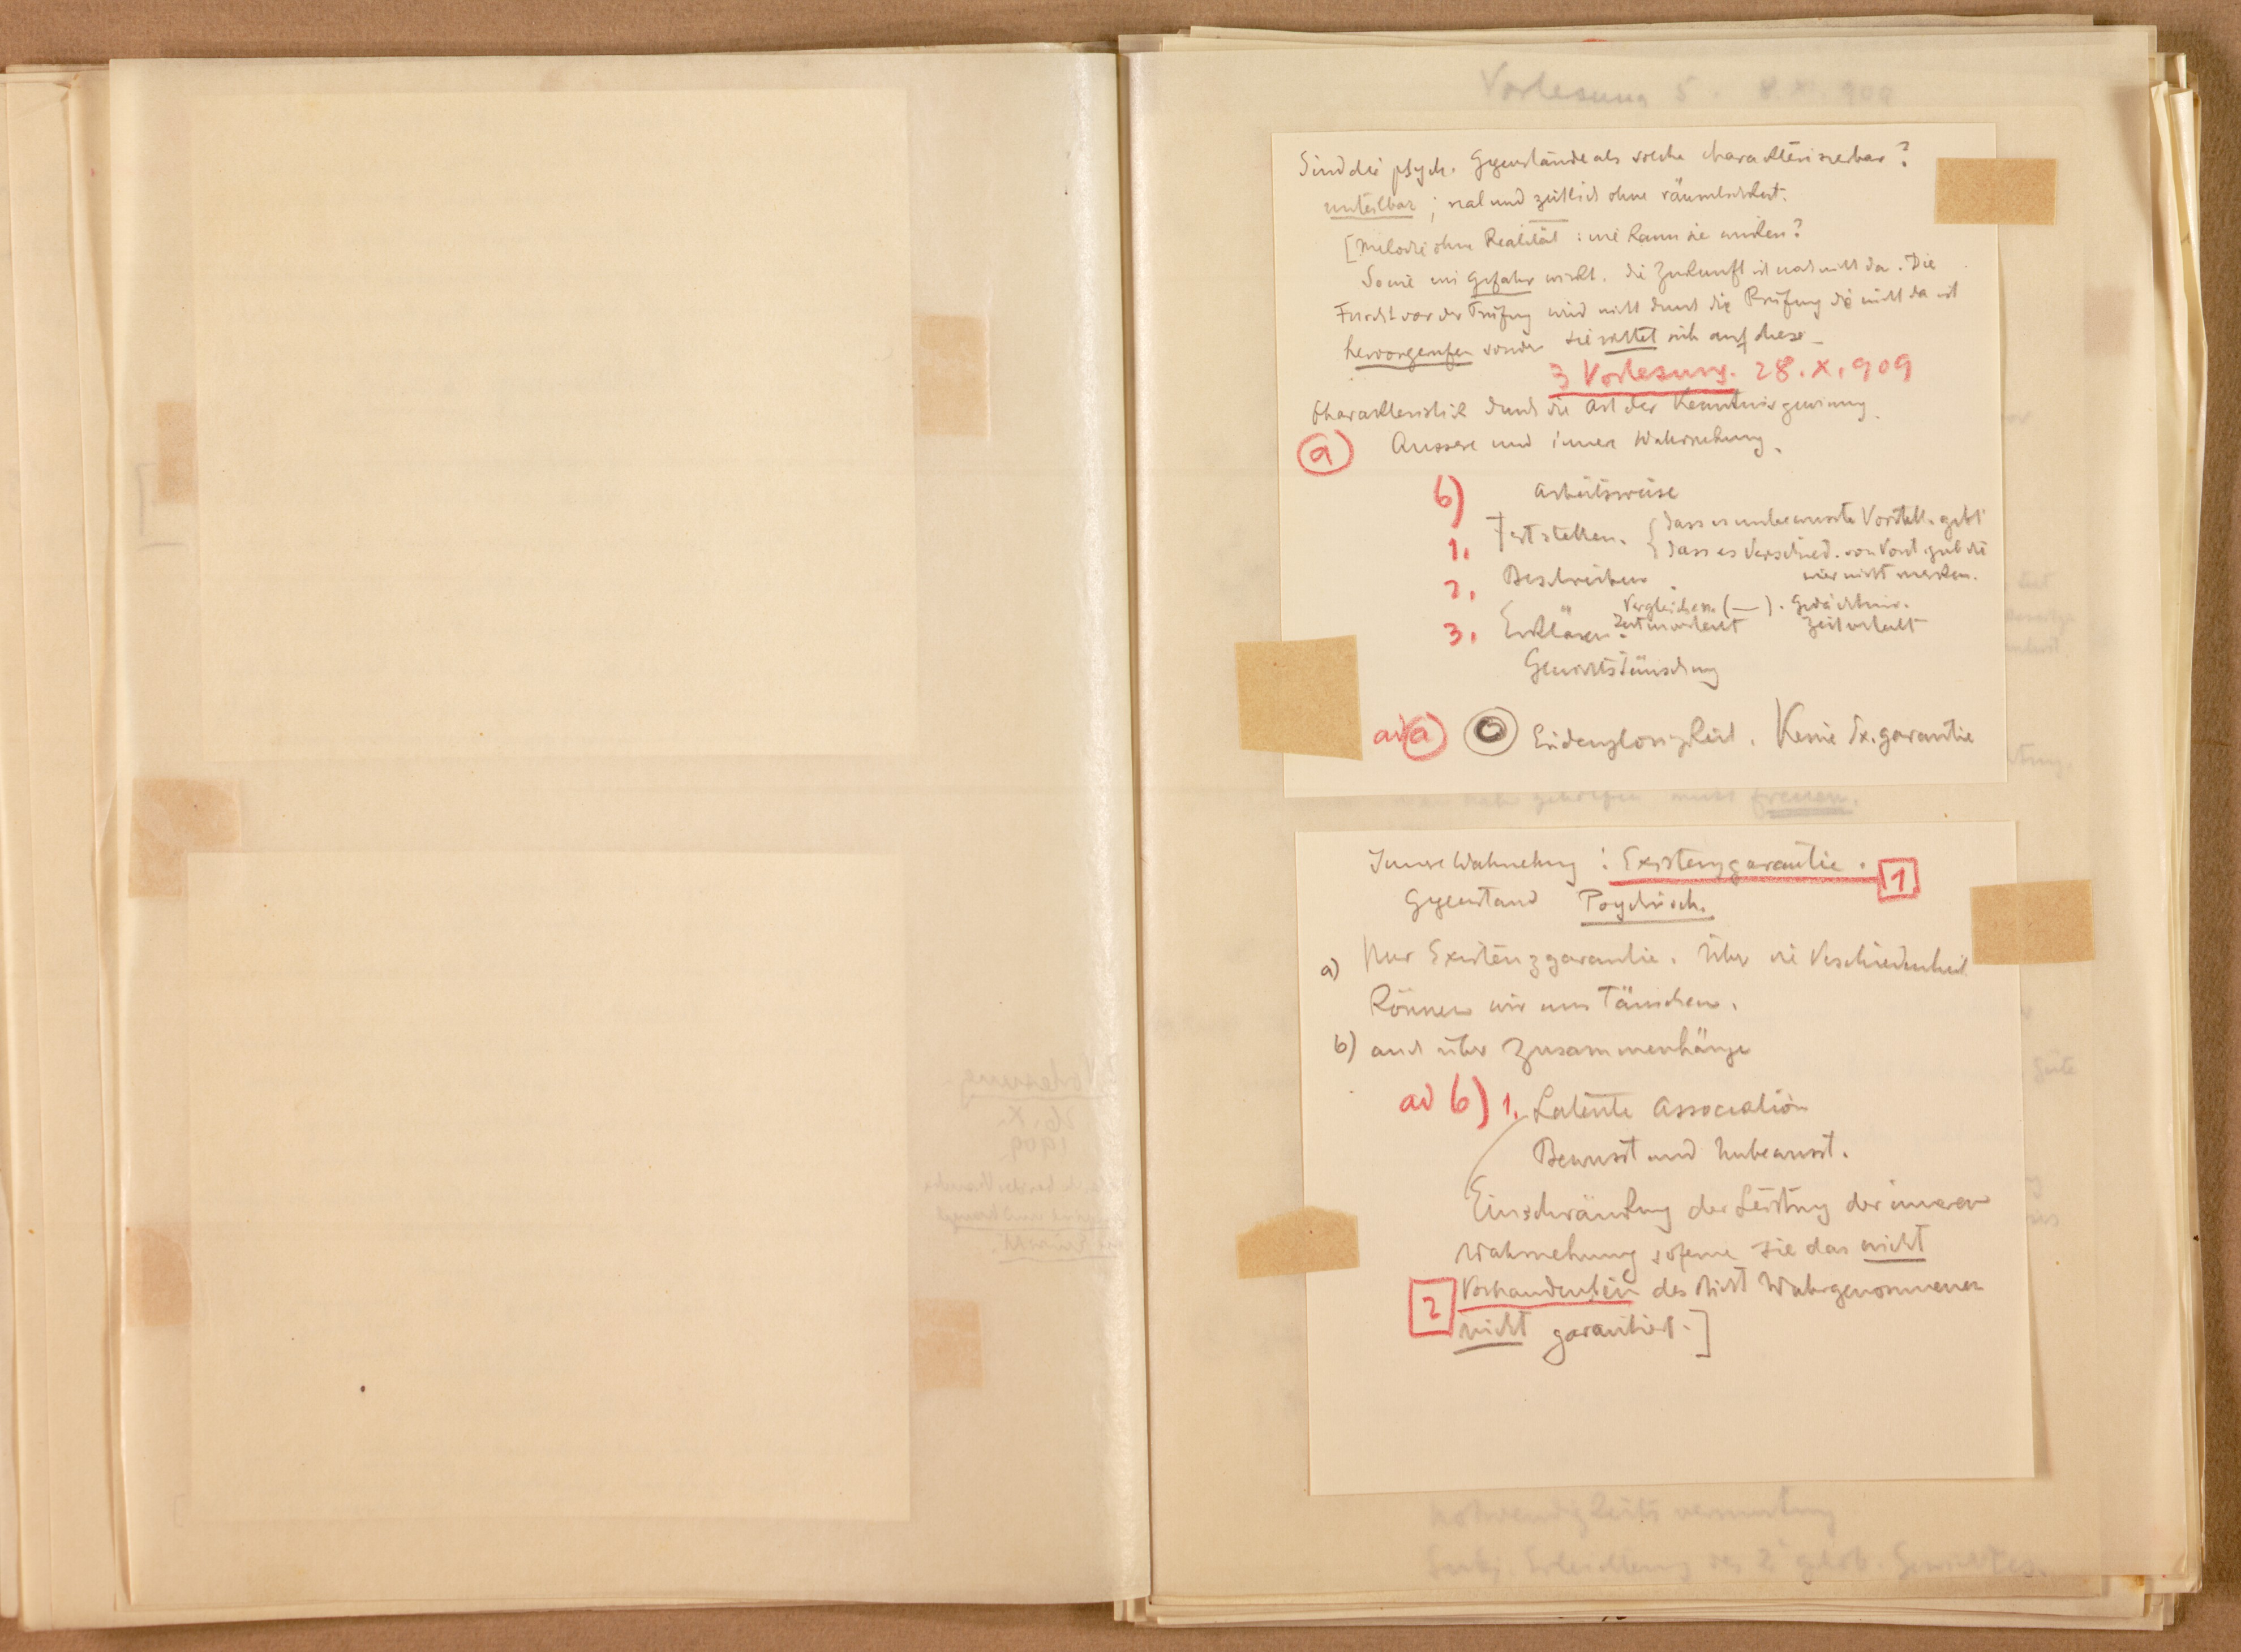 Vorlesung 5. 8.X.909
Sind die psych. Gegenstände als solche charakterisierbar?
unteilbar; real und zeitlich ohne räumlichkeit.
[Melodie ohne Realität: wie kann sie wirken?
So wie ein Gefahr wirkt. die Zukunft ist noch nicht da. Die
Furcht vor der Prüfung wird nicht durch die Prüfung die nicht da ist
hervorgerufen sondern sie richtet sich auf diese
3 Vorlesung. 28.X.909
Charakteristik durch die Art der Kenntnisgewinnung.
a Aussere und innere Wahrnehmung.
b) Arbeitsweise
1. Feststellen. { dass es unbewusste Vorstell. gibt
dass es Verschied. von Vorst. gibt die
wir nicht merken.
2. Beschreiben.
Vergleichen (—). Gedächtnis.
3. Erklären. Zeitverhalt
Gewichtstäuschung
ad a Evidenzlosigkeit. Keine Ex. garantie
Innere Wahrnehmung: Existenzgarantie. 1
Gegenstand Psychisch.
a) Nur Existenzgarantie. Über die Verschiedenheit
können wir uns Täuschen.
b) auch über Zusammenhänge
ad b) 1. Latente Association
Bewusst und Unbewusst.
Einschränkung der Leistung der inneren
Wahrnehmung soferne sie das nicht
2 Vorhandensein des Nicht Wahrgenommenen
nicht garantiert.]